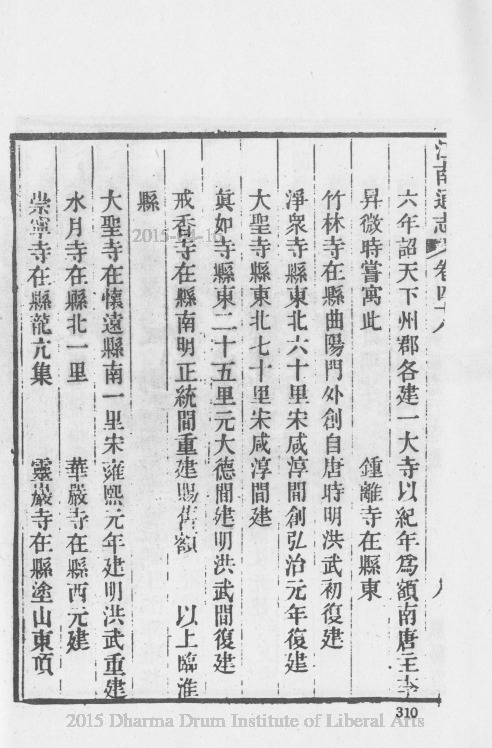 江南通志 卷四十八
六年詔天下州郡各建一大寺以紀年爲額南唐主李
昇微時嘗寓此 鍾離寺在縣東
竹林寺在縣曲陽門外創自唐時明洪武初復建
淨衆寺縣東北六十里宋咸淳間創弘治元年復建
大聖寺縣東北七十里宋咸淳間建
眞如寺縣東二十五里元大德間建明洪武間復建
戒香寺在縣南明正統間重建賜舊額 以上臨淮
縣
大聖寺在懷遠縣南一里宋雍熙元年建明洪武重建
水月寺在縣北一里 華嚴寺在縣西元建
崇寧寺在縣龍亢集 靈巖寺在縣塗山東頂
310
2015 Dharma Drum Institute of Liberal Arts